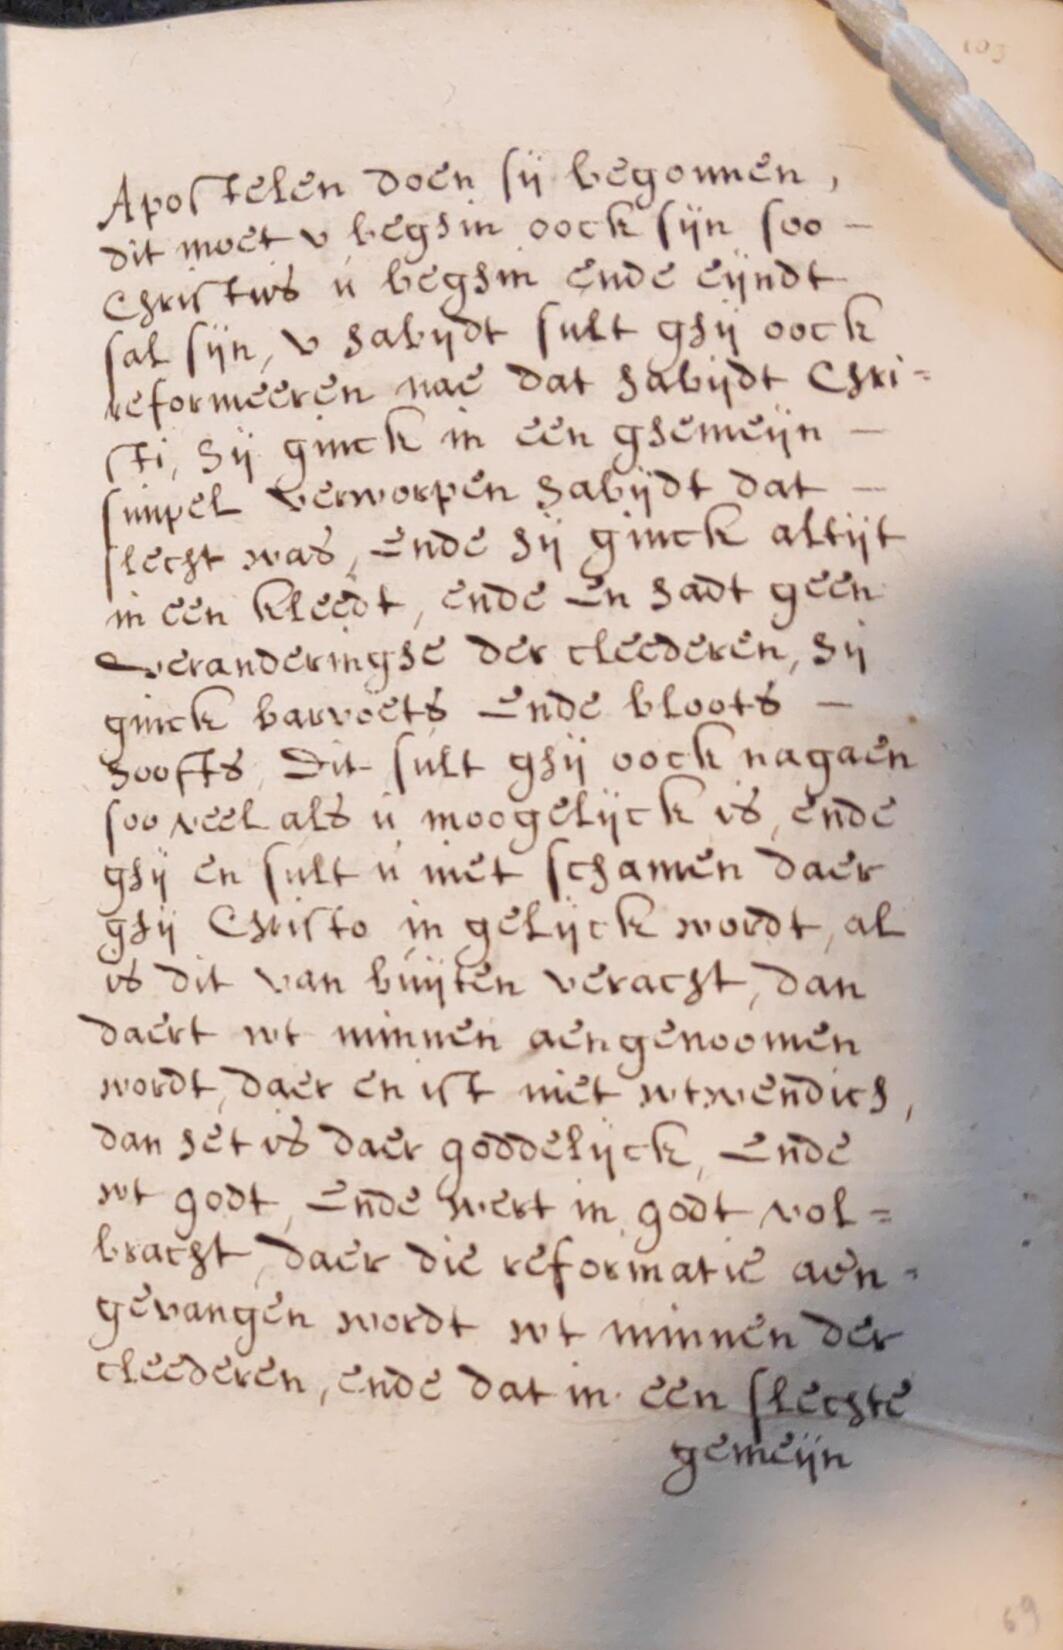 103
Apostelen doen sij begonnen,
dit moet v beghin oock sijn soo –
Christus u beghin ende eijndt
sal sijn, v habijdt sult ghij oock
reformeeren nae dat habijdt Chri=
sti, hij ginck in een ghemeijn –
simpel verworpen habijdt dat –
slecht was, ende hij ginck altijt
in een kleedt, ende en hadt geen
veranderinghe der cleederen, hij
ginck barvoets ende bloots –
hoofts, Dit sult ghij oock nagaen
soo veel als u moogelijck is, ende
ghij en sult u niet schamen daer
ghij Christo in gelijck wordt, al
is dit van buijten veracht, dan
daert wt minnen aengenoomen
wordt, daer en ist niet wtwendich,
dan het is daer goddelijck, ende
wt godt, ende wert in godt vol=
bracht, daer die reformatie aen-
gevangen wordt wt minnen der
cleederen, ende dat in een slechte
gemeijn
69